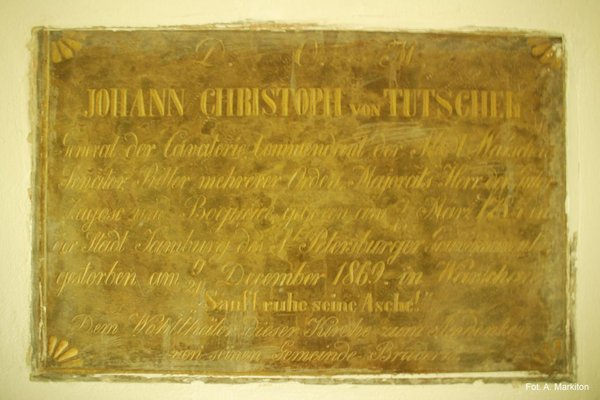 D. O. M
JOHANN CHRISTOPH VON TUTSCHEK
General der Cavalerie Commendant der Stadt Warschau
Senator, Ritter mehrerer Orden, Majorats Herr
und geboren am Mai
der Stadt Jamburg des St Petersburger Gouvernements
gestorben am 9/21 December 1869. in Warschau
"Sanft ruhe seine Asche!"
Dem Wohlthäter dieser Kirche zum Andenken
von seinen Gemeinde-Brüdern
Fot. A. Markiton